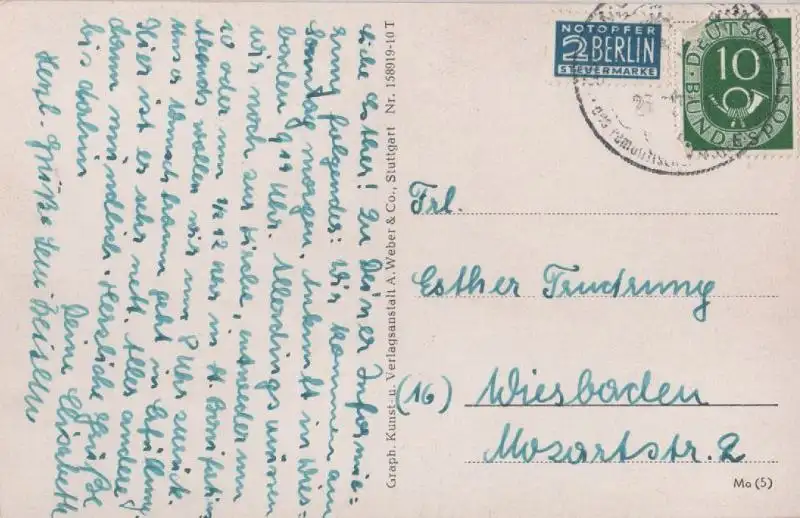 Liebe Esther! Zu Deiner Informie=
rung folgendes: Wir kommen am
Sonntag morgen, Ankunft in Wies=
baden 9 19 Uhr. Allerdings müssen
wir noch zur Kirche, entweder um
10 oder um 1/2 12 Uhr in St. Bonifatius.
Abends wollen wir um 8 Uhr zurück.
Unser Wunschtraum geht in Erfüllung.
Hier ist es sehr nett. Alles andere
dann mündlich. Herzliche Grüße
bis dahin Deine Elisabeth
Herzl. Grüße
Graph. Kunst- u. Verlagsanstalt A. Weber & Co., Stuttgart Nr. 158919-10 T
NOTOPFER
2 BERLIN
STEUERMARKE
DEUTSCHE
BUNDESPOST
10
Frl.
Esther Trudrung
(16) Wiesbaden
Mozartstr. 2
Mo (5)